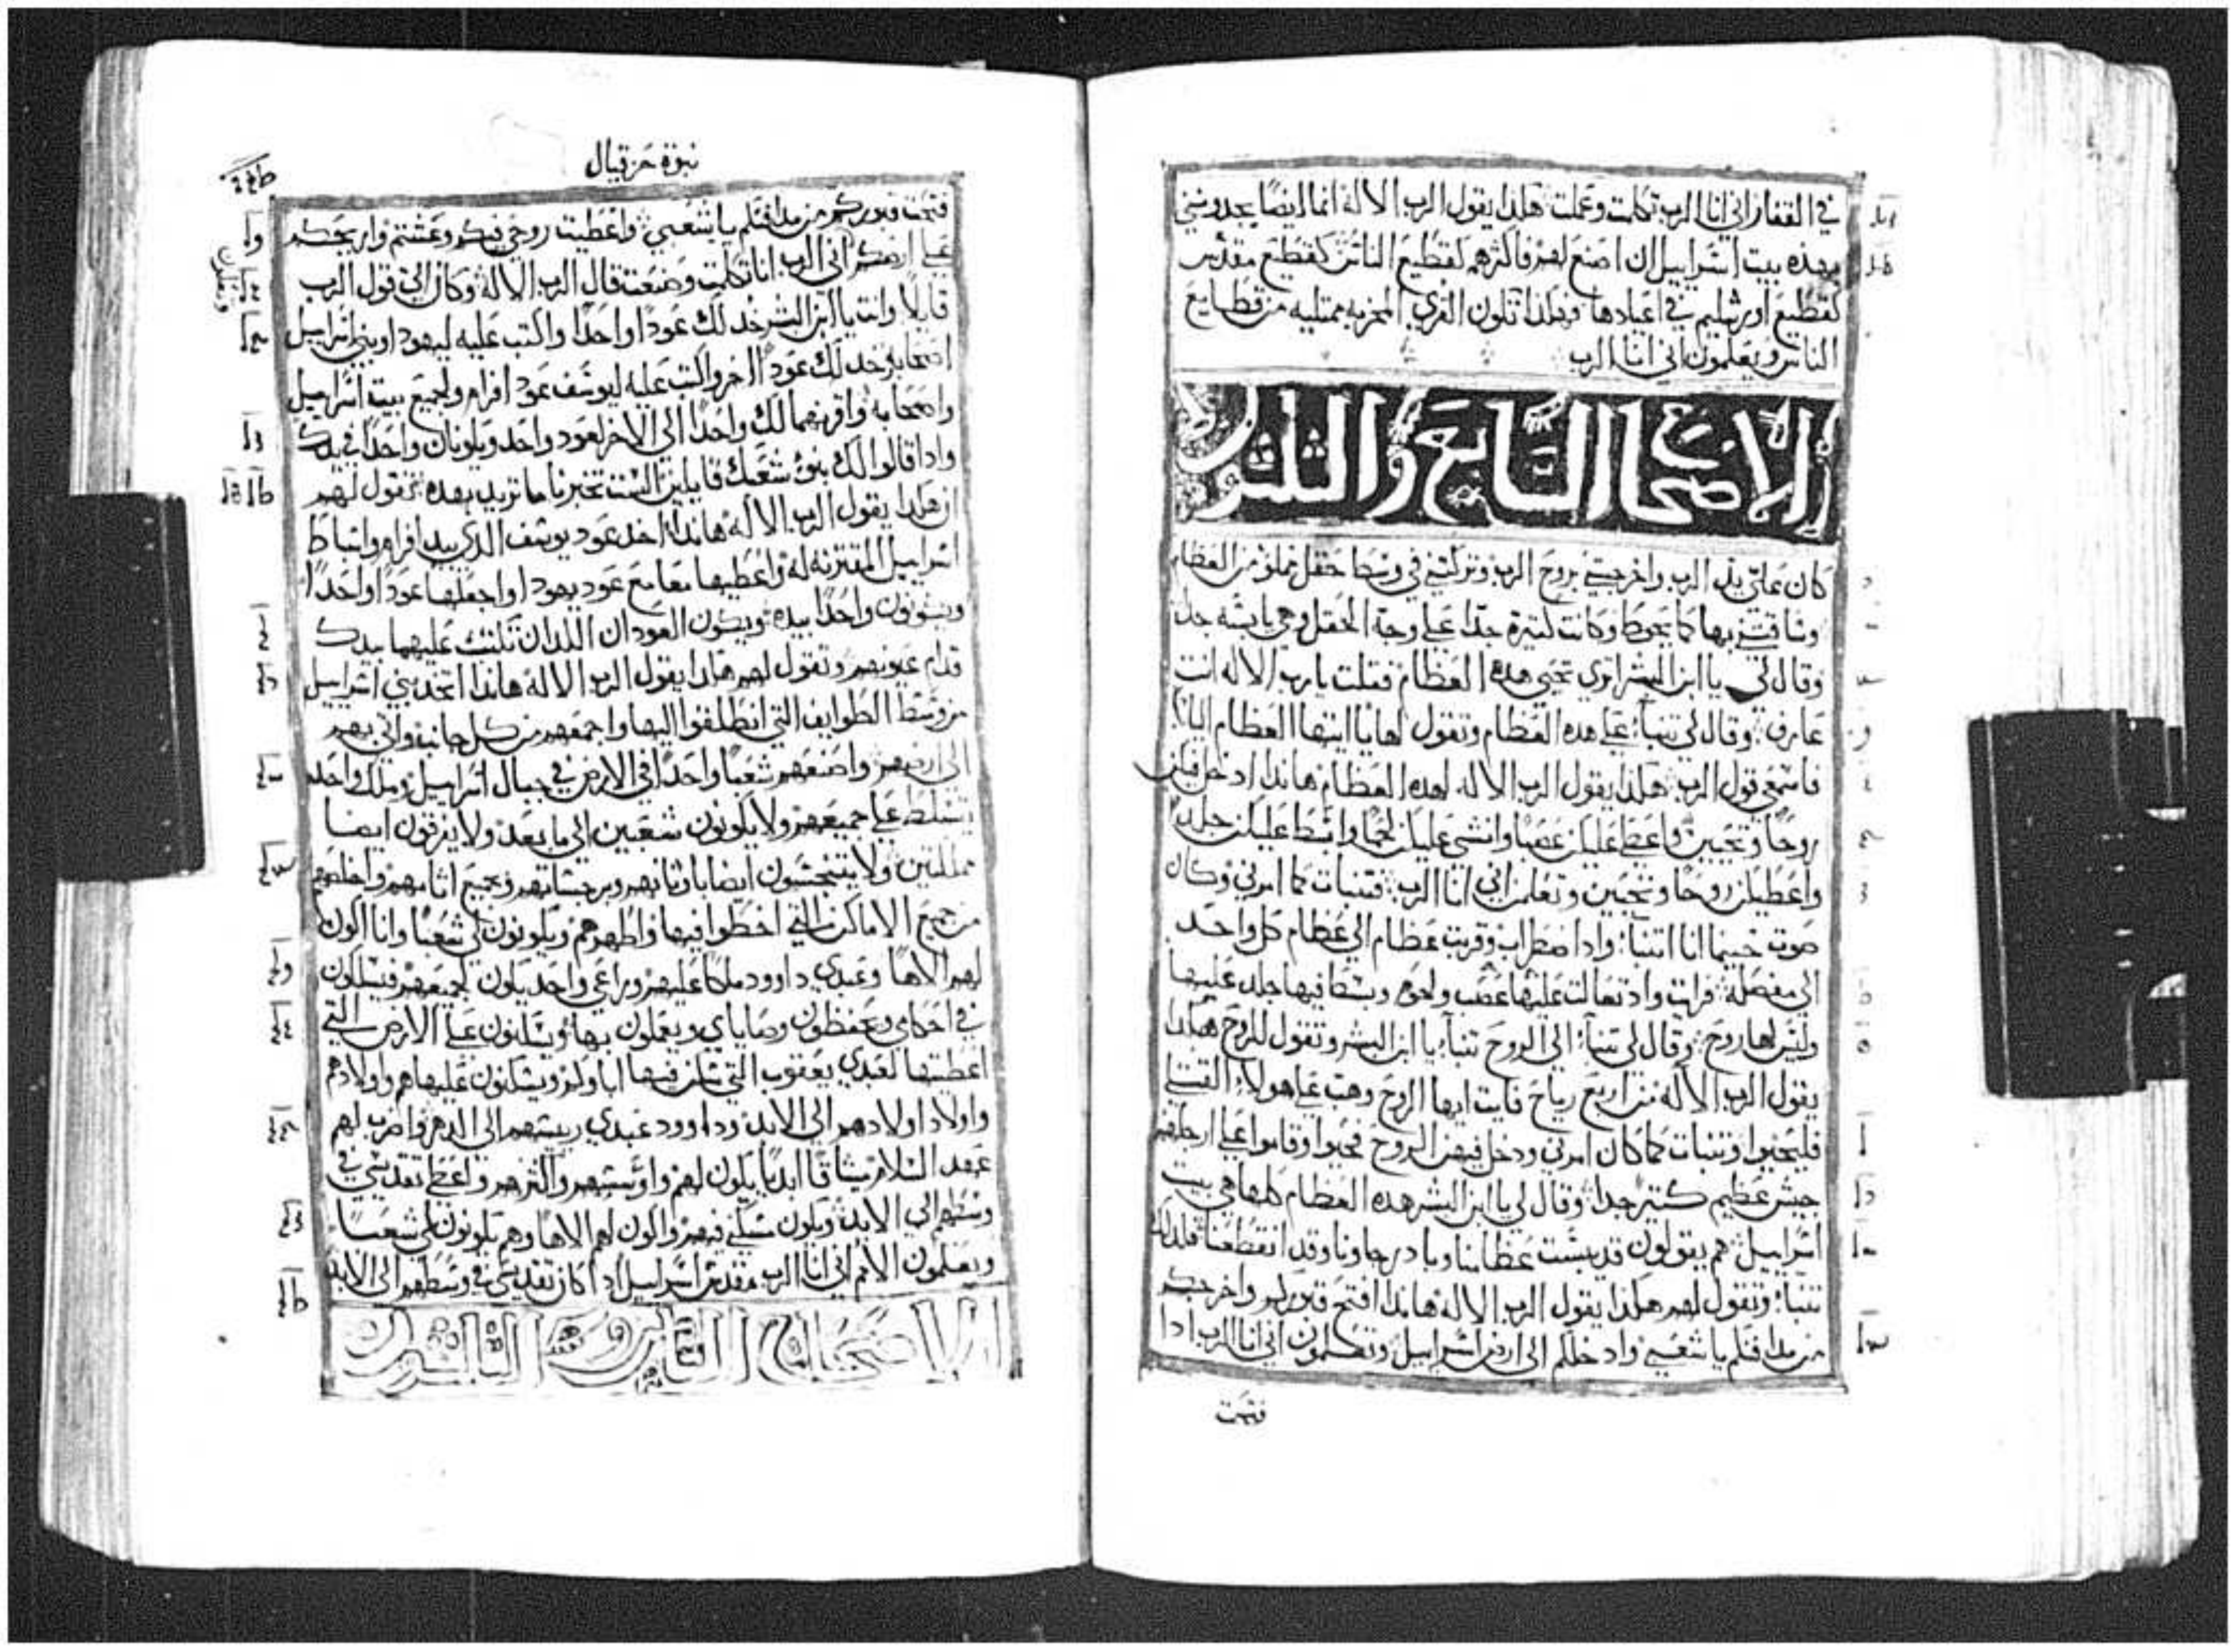 في القفار اني انا الرب تكلمت وعملت هكذا يقول الرب الاله انما ايضا يجدوني
بهذه بيت اسراييل ان اصنع لهم فاكثرهم كقطيع الناس كقطيع مقدس
كقطيع اورشليم في اعيادها فهكذا تكون القري المخربه ممتليه من قطايع
الناس ويعلمون اني انا الرب
الاصحاح السابع والثلثون
كان علي يد الرب واخرجني بروح الرب وتركني في وسط حقل مملو من العظام
بها كما يحوط وكانت كتيره جدا علي وجه الحقل وهي يابسه جدا
وقال لي يا ابن البشر اتري تحيي هذه العظام فقلت يارب الاله انت
عارف وقال لي تنبأ علي هذه العظام وتقول لها يا ايتها العظام اليابسه
فاسمعي قول الرب هكذا يقول الرب الاله لهذه العظام هاندا ادخل فيكن
روحا وتحيين واعطي عليكن عصبا وانشي عليكن لحما وابسط عليكن جلدا
واعطيكن روحا وتحيين وتعلمن اني انا الرب فتنبات كما امرني وكان
صوت حينما انا اتنبأ واذا اضطراب وقربت عظام الي عظام كل واحد
الي مفصله فرايت واذ تعالت عليها عصب ولحم وبسط فيها جلد عليها
وليس لها روح وقال لي تنبأ الي الروح تنبأ يا ابن البشر وتقول للروح هكذا
يقول الرب الاله من اربع رياح فايت ايها الروح وهب علي هولاء القتلي
فليحيوا وتنبات كما كان امرني ودخل فيهن الروح فحيوا وقاموا علي ارجلهم
جيش عظيم كتير جدا وقال لي يا ابن البشر هذه العظام كلها هي بيت
اسراييل هم يقولون قد يبست عظامنا وباد رجاونا وقد انقطعنا فلذلك
تنبأ وتقول لهم هكذا يقول الرب الاله هاندا افتح قبوركم واخرجكم
من مدافنكم يا شعبي وادخلكم الي ارض اسراييل وتعلمون اني انا الرب اذا
فتحت
نبوة حزقيال
فتحت قبوركم من مدافنكم يا شعبي واعطيت روحي فيكم وعشتم واريحكم
علي ارضكم اني الرب انا تكلمت وصنعت قال الرب الاله وكان الي قول الرب
قايلا وانت يا ابن البشر خد لك عودا واحدا واكتب عليه ليهودا وبني اسراييل
اصحابه خد لك عود اخر واكتب عليه ليوسف عود افرام ولجميع بيت اسراييل
واصحابه واقرنهما لك واحدا الي الاخر لعود واحد ويكونان واحدا في يدك
واذا قالوا لك بنو شعبك قايلين الست تخبرنا ما تريد بهذه فتقول لهم
ان هكذا يقول الرب الاله هاندا اخد عود يوسف الذي بيد افرام واسباط
اسراييل المقترنه له واعطيها معا مع عود يهودا واجعلها عودا واحدا
ويكونون واحدا بيده ويكون العودان اللذان تكتب عليهما بيدك
قدام عيونهم وتقول لهم هكذا يقول الرب الاله هاندا اتخد بني اسراييل
من وسط الطوايف التي انطلقوا اليها واجمعهم من كل جانب واتي بهم
الي ارضهم واصنعهم شعبا واحدا في الارض في جبال اسراييل وملك واحد
يتسلط علي جميعهم ولا يكونون شعبين الي ما بعد ولا يفرقون ايضا
مملكتين ولا يتنجسون ايضا باوثانهم وبرجساتهم وبجميع اثامهم واخلصهم
من جميع الاماكن التي اخطوا فيها واطهرهم ويكونون لي شعبا وانا اكون
لهم الاها وعبدي داوود ملكا عليهم وراعي واحد يكون لجميعهم فيسلكون
في احكامي ويحفظون وصاياي ويعملون بها ويسكنون علي الارض التي
اعطيتها لعبدي يعقوب التي سكن فيها اباوكم ويسكنون عليها هم واولادهم
واولاد اولادهم الي الابد وداوود عبدي رييسهم الي الدهر واضرب لهم
عهد السلام ميثاقا ابديا يكون لهم واوسسهم واكثرهم واعطي تقديسي في
وسطهم الي الابد ويكون مسكني فيهم واكون لهم الاها وهم يكونون لي شعبا
ويعلمون الامم اني انا الرب مقدس اسراييل اذا كان تقديسي في وسطهم الي الابد
الاصحاح الثامن والثلثون